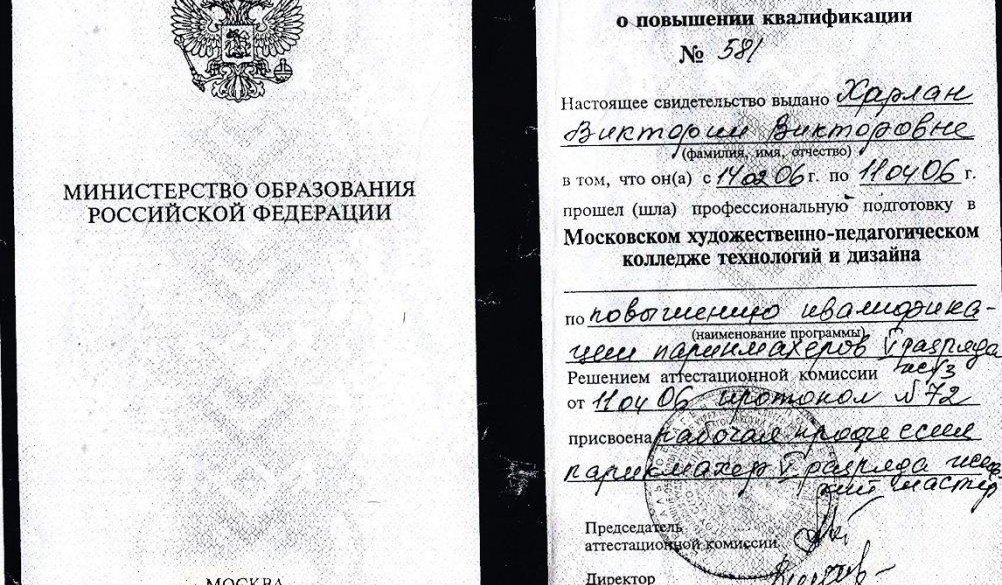 МИНИСТЕРСТВО ОБРАЗОВАНИЯ
РОССИЙСКОЙ ФЕДЕРАЦИИ
МОСКВА
о повышении квалификации
№ 581
Настоящее свидетельство выдано Харлан
Виктории Викторовне
(фамилия, имя, отчество)
в том, что он(а) с 14 02 06 г. по 11 04 06 г.
прошел (шла) профессиональную подготовку в
Московском художественно-педагогическом
колледже технологий и дизайна
по повышению квалифика-
(наименование программы)
ции парикмахеров V разряда
Решением аттестационной комиссии
от 11 04 06 протокол № 72
присвоена рабочая профессия
парикмахер V разряда женс
кий мастер
Председатель
аттестационной комиссии
Директор